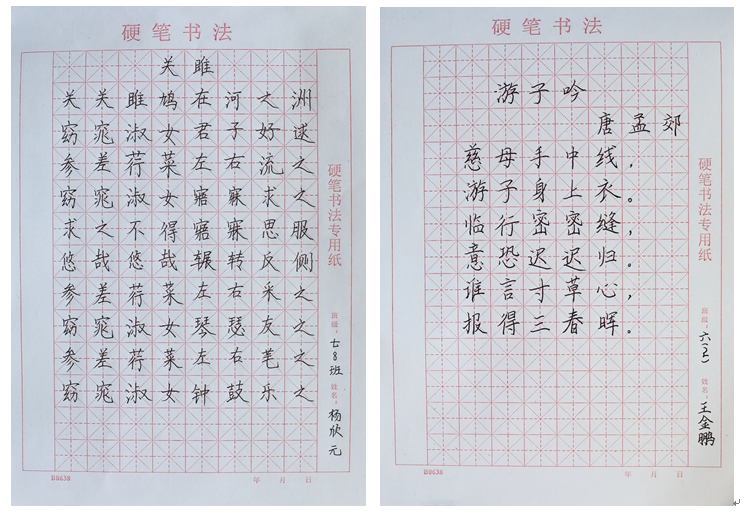 硬笔书法
关雎
关关雎鸠在河之洲
窈窕淑女君子好逑
参差荇菜左右流之
窈窕淑女寤寐求之
求之不得寤寐思服
悠哉悠哉辗转反侧
参差荇菜左右采之
窈窕淑女琴瑟友之
参差荇菜左右芼之
窈窕淑女钟鼓乐之
硬笔书法专用纸
班级：七8班
姓名：杨欣元
B8638 年 月 日
硬笔书法
游子吟
唐 孟郊
慈母手中线，
游子身上衣。
临行密密缝，
意恐迟迟归。
谁言寸草心，
报得三春晖。
硬笔书法专用纸
班级：六
姓名：王金鹏
B8638 年 月 日